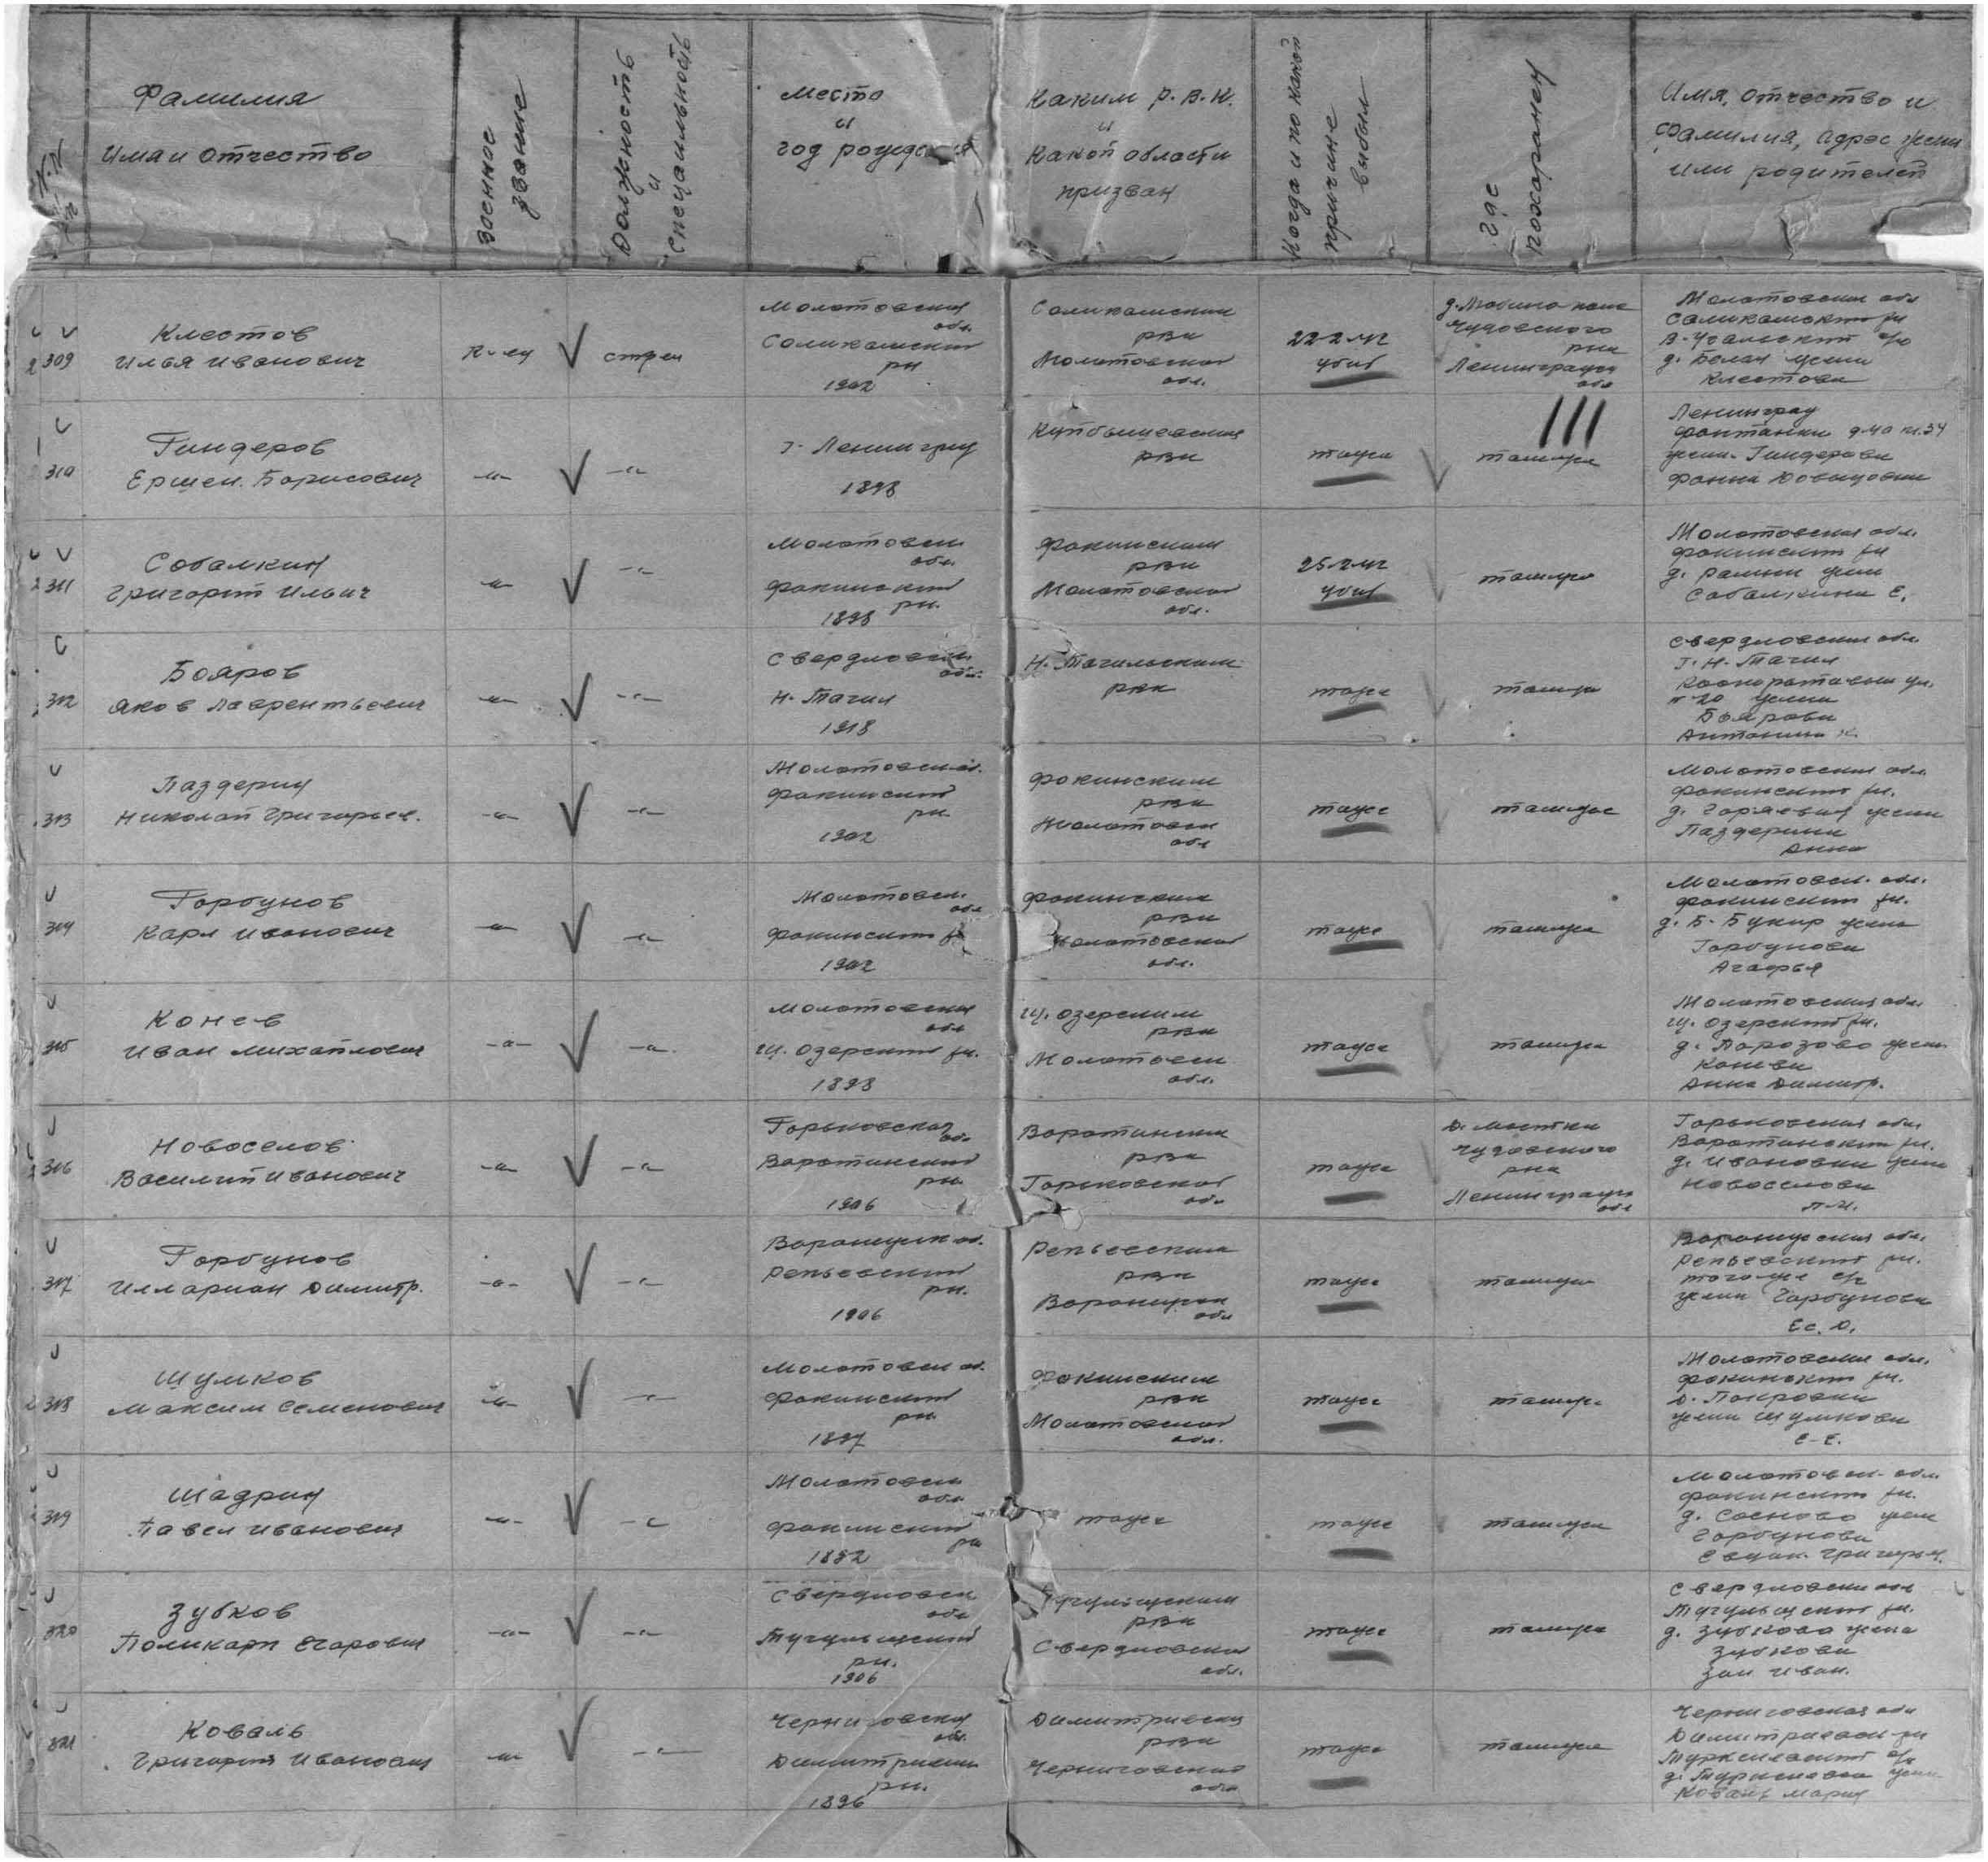 № п.п
Фамилия
Имя и Отчество
Военное
звание
Должность
и
специальность
Место
и
год рождения
Каким Р.В.К.
и
Какой области
призван
Когда и по какой
причине
выбыл
Где
похоронен
Имя, отчество и
фамилия, адрес жены
или родителей
309
Клестов
Илья Иванович
стрел
Молотовская
обл.
Соликамский
рн
1902
Соликамским
рвк
Молотовской
обл.
22.2.42
убит
Чудовского
рна
Ленинградск
обл
Молотовская обл
Соликамский рн
д. Белая жена
Клестова
310
Гиндеров
Ершен. Борисович
-"-
-"-
г. Ленинград
1898
Куйбышевским
рвк
тоже
там же
Ленинград
Фонтанка д 40 кв. 54
жена Гиндерова
Фанна Давыдовна
311
Собалкин
Григорий Ильич
-"-
-"-
Молотовск
обл.
Фокинский
рн.
1898
Фокинским
рвк
Молотовской
обл.
25.2.42
убит
там же
Молотовская обл.
Фокинский рн
жена
Собалкина Е.
312
Бояров
Яков Лаврентьевич
-"-
-"-
Свердловск
обл.
Н-Тагил
1918
Н-Тагильским
рвк
тоже
там же
Свердловская обл
г. Н-Тагил
Кооперативная ул.
№ 20 жена
Боярова
Антонина К.
313
Паздерин
Николай Григорьев.
-"-
-"-
Молотовск об.
Фокинский
рн.
1902
Фокинским
рвк
Молотовск
обл
тоже
там же
Молотовская обл.
Фокинский рн.
жена
Паздерина
Анна
314
Горбунов
Карл Иванович
-"-
-"-
Молотовск.
обл
Фокинский рн
1902
Фокинским
рвк
Молотовской
обл.
тоже
там же
Молотовск. обл.
Фокинский рн.
д. Б. Букир жена
Горбунова
Агафья
315
Конев
Иван Михайлович
-"-
-"-
Молотовская
обл
Щ. Озерский рн.
1898
Щ. Озерским
рвк
Молотовск
обл.
тоже
там же
Молотовская обл.
Щ. Озерский рн.
д. Порозово жена
Конева
Анна Димитр.
316
Новоселов
Василий Иванович
-"-
-"-
Горьковская
обл
Воротынский
рн.
1906
Воротынским
рвк
Горьковской
обл
тоже
Д. Мостки
Чудовского
рна
Ленинградск
обл
Горьковская обл.
Воротынский рн.
д. Ивановка жена
Новоселова
П.И.
317
Горбунов
Илларион Димитр.
-"-
-"-
Воронежск об.
Репьевский
рн.
1906
Репьевским
рвк
Воронежск
обл
тоже
там же
Воронежская обл.
Репьевский рн.
того же с/с
жена Горбунова
Ес. Д.
318
Шумков
Максим Семенович
-"-
-"-
Молотовск об.
Фокинский
рн.
1897
Фокинским
рвк
Молотовской
обл.
тоже
там же
Молотовская обл.
Фокинский рн.
д. Покровка
жена Шумкова
Е-Е.
319
Шадрин
Павел Иванович
-"-
-"-
Молотовск
обл
Фокинский
рн
1892
тоже
тоже
там же
Молотовск. обл.
Фокинский рн.
д. Сосново жена
Горбунова
Григорьев.
320
Зубков
Поликарп Егорович
-"-
-"-
Свердловск
обл
Тугулымский
рн.
1906
Тугулымским
рвк
Свердловской
обл.
тоже
там же
Свердловская обл
Тугулымский рн.
д. Зубково жена
Зубкова
Зои Иван.
321
Коваль
Григорий Иванович
-"-
-"-
Черниговская
обл.
Димитриевск
рн.
1896
Димитриевск
рвк
Черниговской
обл
тоже
там же
Черниговская обл
Димитриевск рн
Коваль Мария